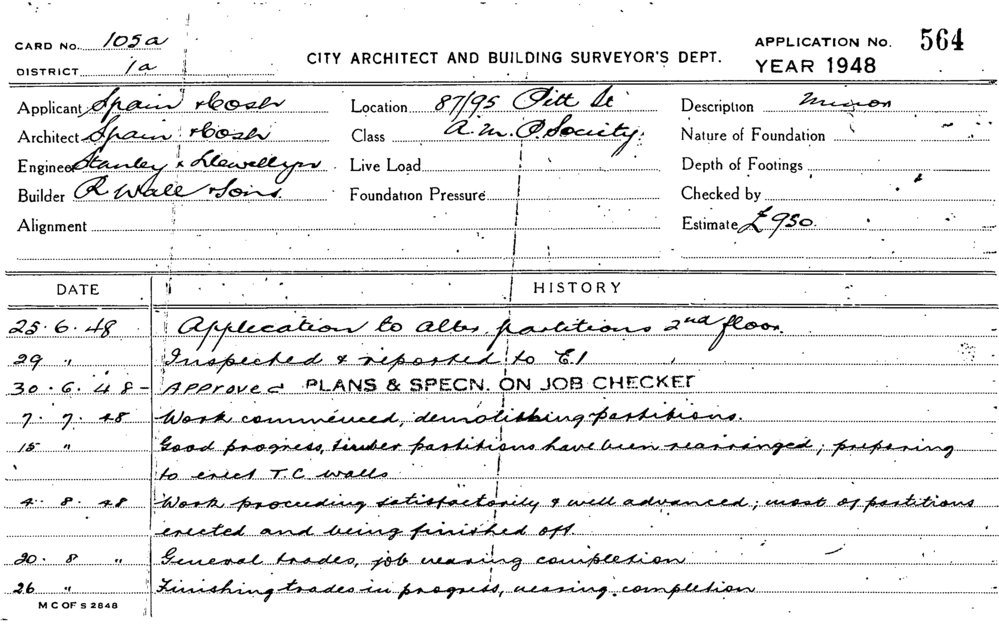 CARD No. 105a
DISTRICT 1a
CITY ARCHITECT AND BUILDING SURVEYOR'S DEPT.
APPLICATION No. 564
YEAR 1948
Applicant Spain & Cosh Location 87/95 Pitt St Description Minor
Architect Spain & Cosh Class A.M.P. Society. Nature of Foundation
Engineer Stanley & Llewellyn Live Load Depth of Footings
Builder R Wall & Sons. Foundation Pressure Checked by
Alignment Estimate £950.
DATE HISTORY
25.6.48 Application to alter partitions 2nd floor.
29 " Inspected & reported to E1
30.6.48- Approved PLANS & SPECN. ON JOB CHECKET
7.7.48 Work commenced, demolishing partitions.
15 " Good progress, timber partitions have been rearringed; preparing
to erect T.C walls
4.8.48 Work proceeding satisfactorily & well advanced; most of partitions
erected and being finished off.
20.8 " General trades, job nearing completion
26 " Finishing trades in progress, nearing completion
M C OF S 2848